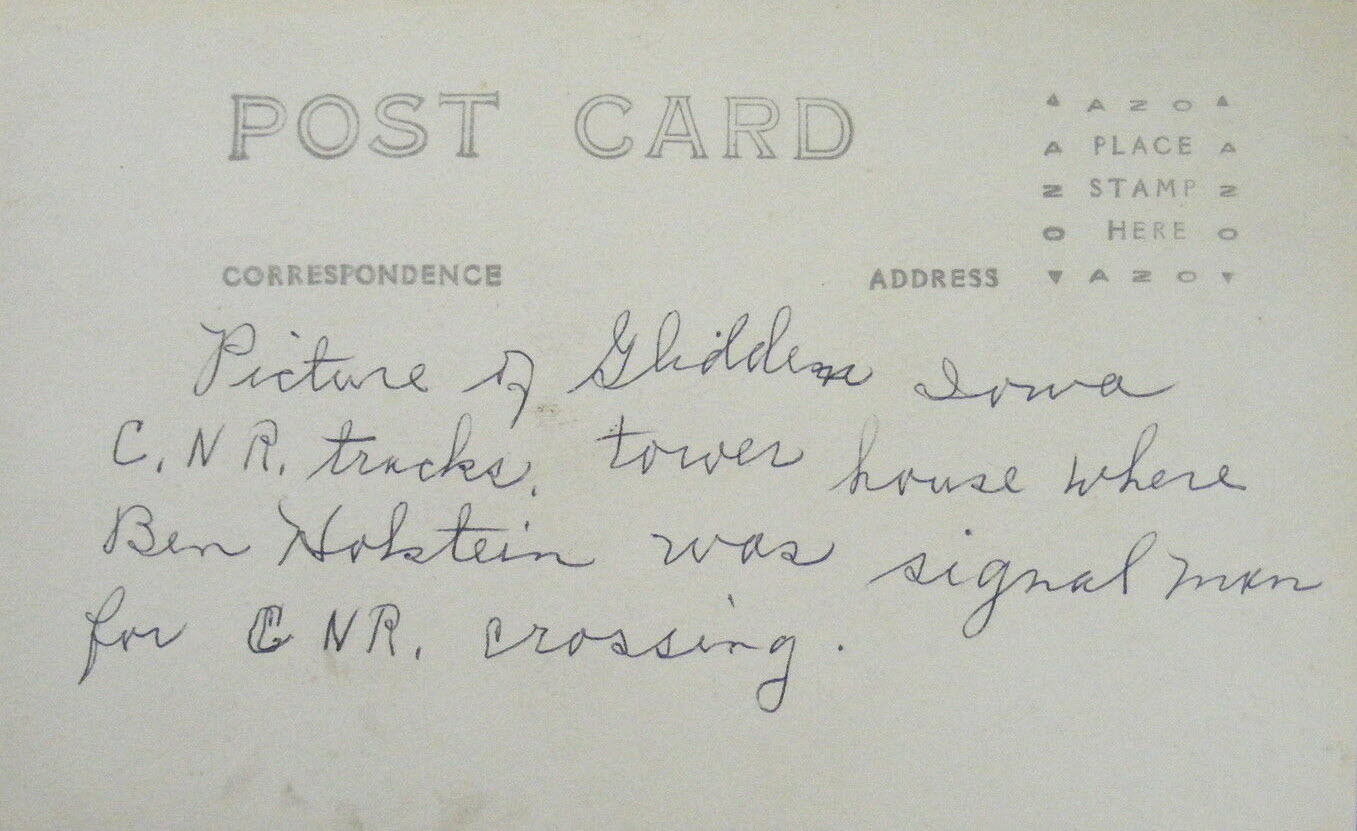 POST CARD
▲ A Z O ▲
A PLACE A
Z STAMP Z
O HERE O
▼ A Z O ▼
CORRESPONDENCE
ADDRESS
Picture of Glidden Iowa
C.N R. tracks. tower house where
Ben Holstein was signal man
for C NR. crossing.